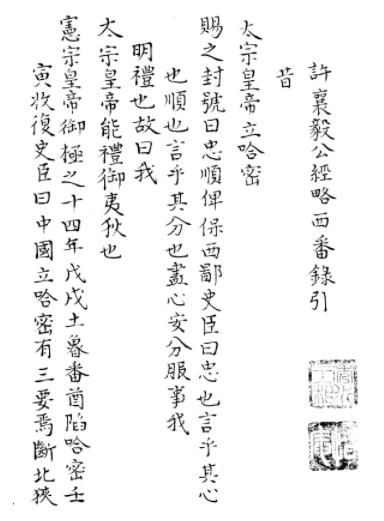 許襄毅公經略西番錄引
昔
太宗皇帝立哈密
賜之封號曰忠順俾保西鄙史臣曰忠也言乎其心
也順也言乎其分也盡心安分服事我
明禮也故曰我
太宗皇帝能禮御夷狄也
憲宗皇帝御極之十四年戊戌土魯番酋陷哈密壬
寅收復史臣曰中國立哈密有三要焉斷北狹